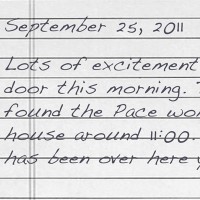 September 25, 2011
Lots of excitement
door this morning.
found the Pace
house around 11:00.
has been over here